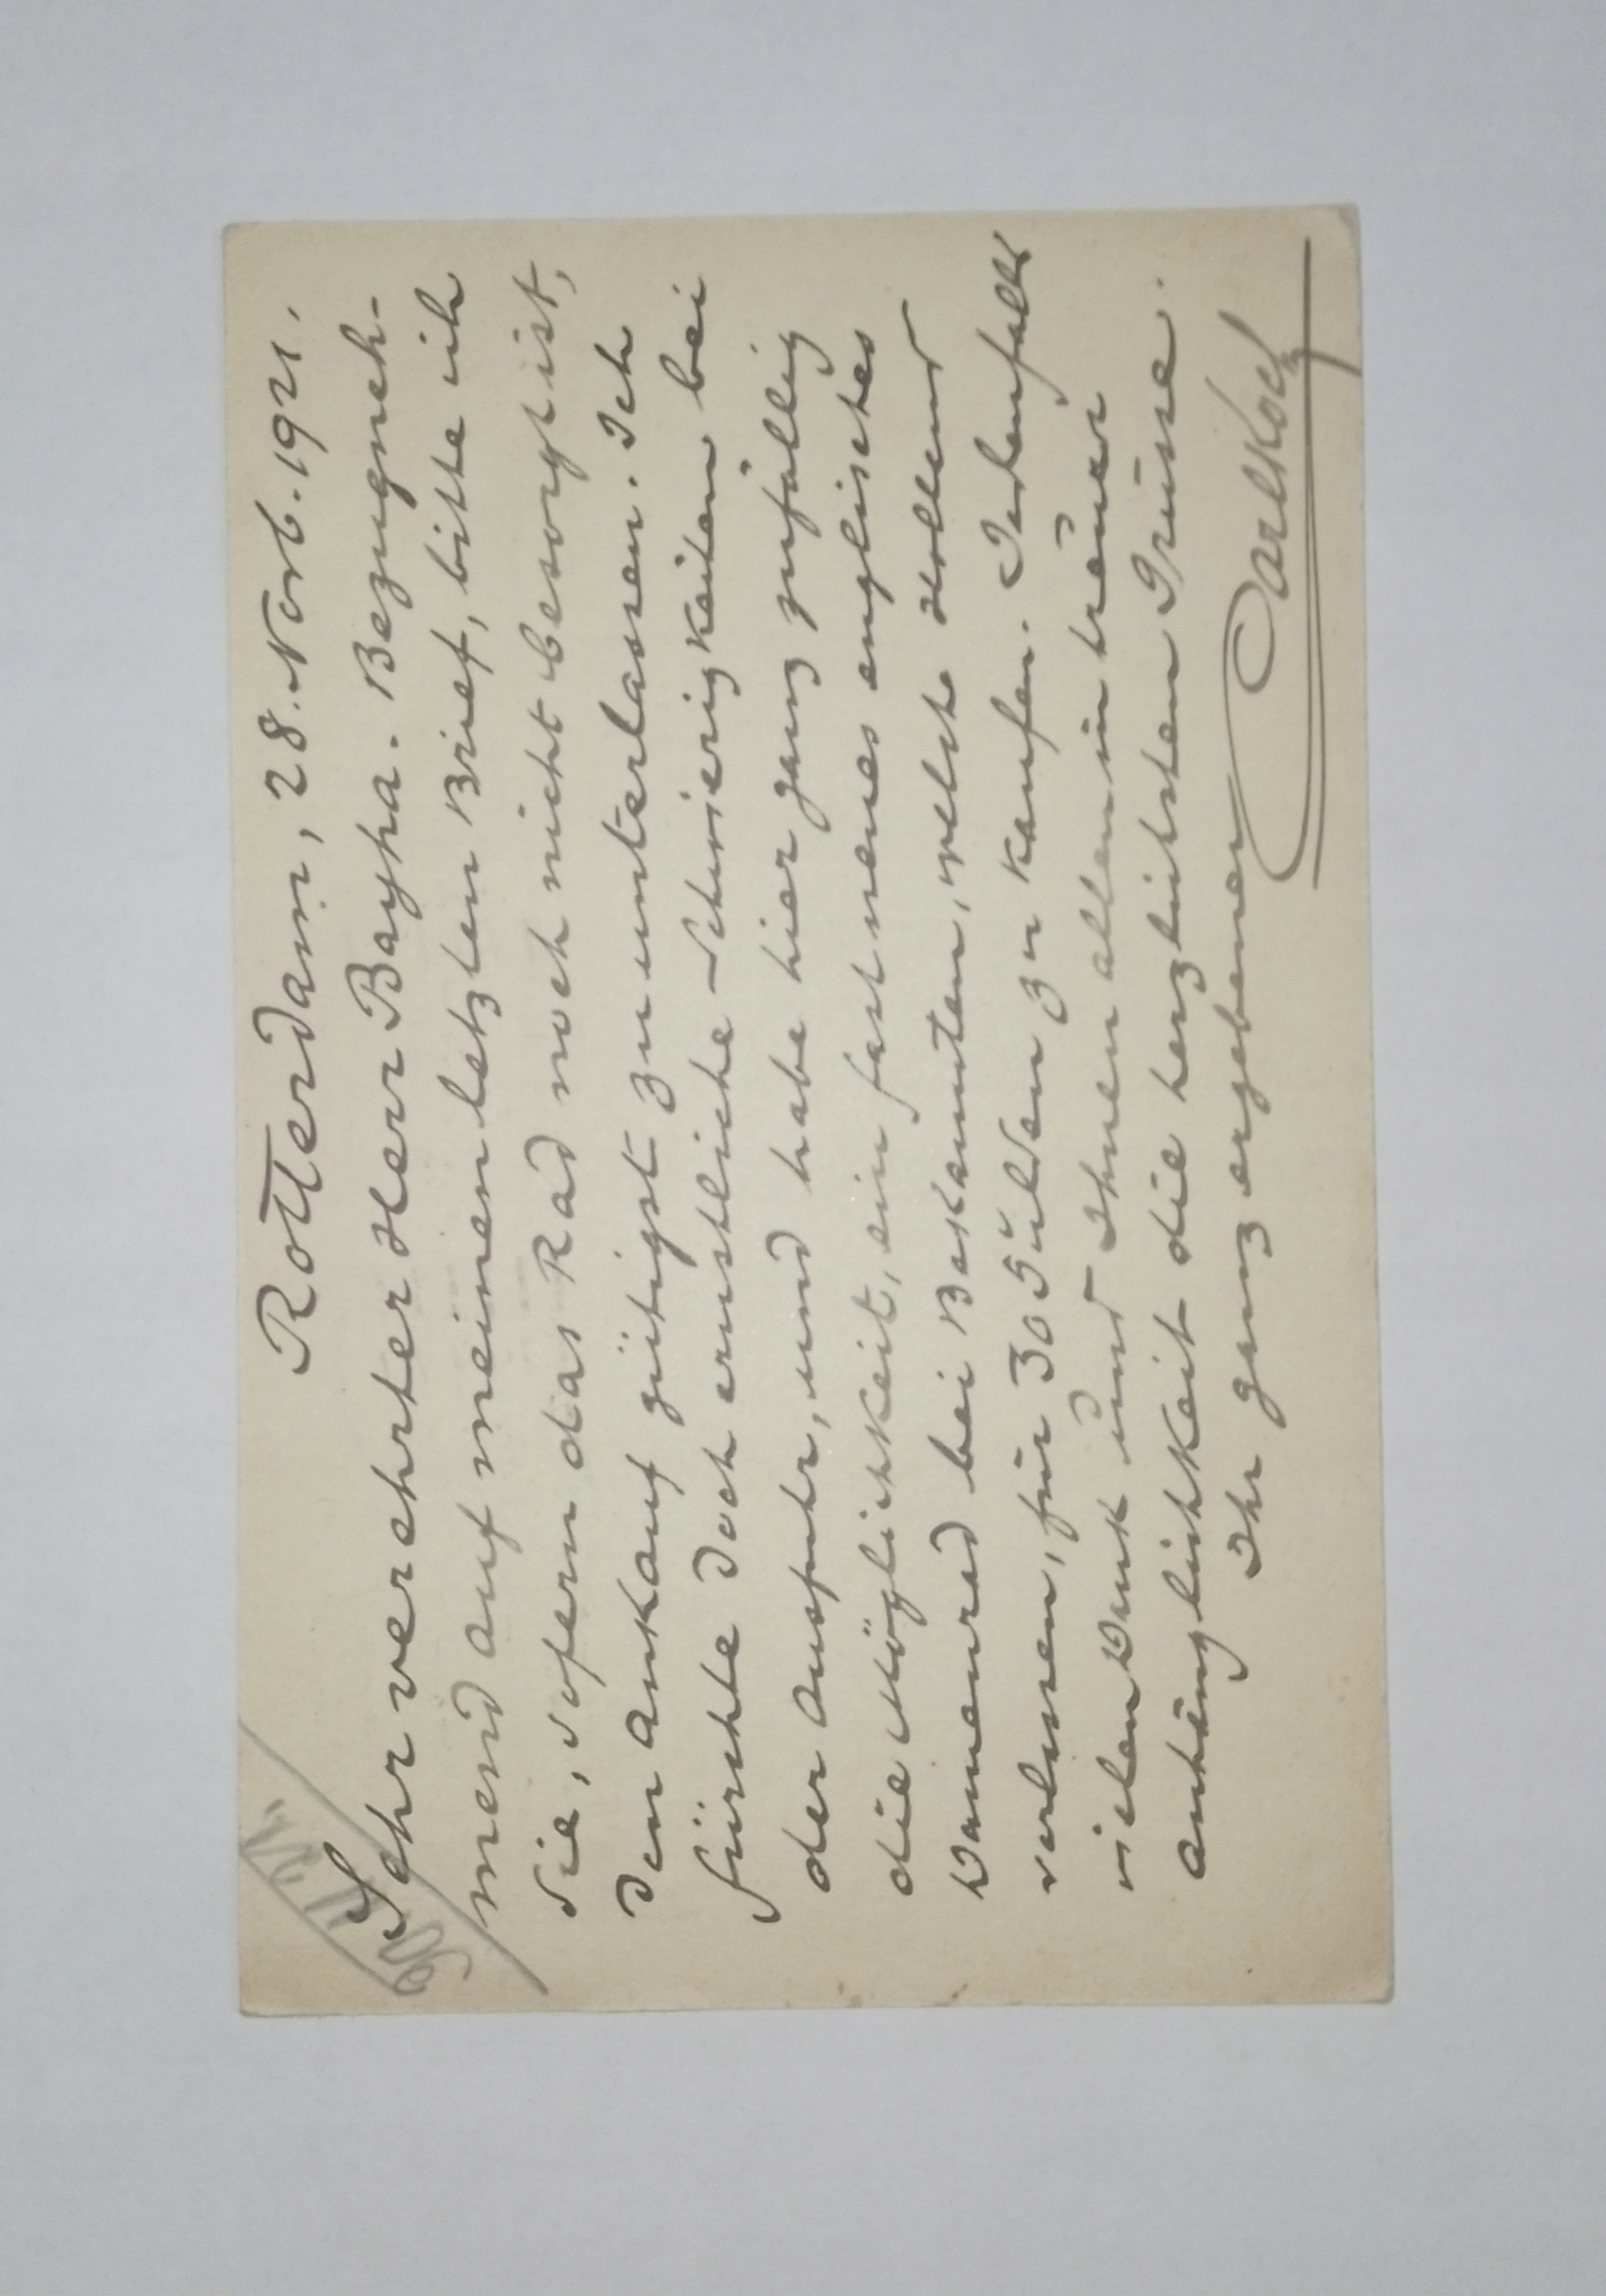 Rotterdam, 28. Nov. 1921.
Sehr verehrter Herr Bayha. Bezugneh-
mend auf meinen letzten Brief, bitte ich
Sie, sofern das Rad noch nicht besorgt ist,
den Ankauf gütigst zu unterlassen. Ich
fürchte doch ernstliche Schwierigkeiten bei
der Ausfuhr, und habe hier ganz zufällig
die Möglichkeit, ein fast neues englisches
Damenrad bei Bekannten, welche Holland
verlassen, für 30 Gulden zu kaufen. Jedenfalls
vielen Dank und Ihnen allen in treuer
Anhänglichkeit die herzlichsten Grüsse.
Ihr ganz ergebener
Carl Koch